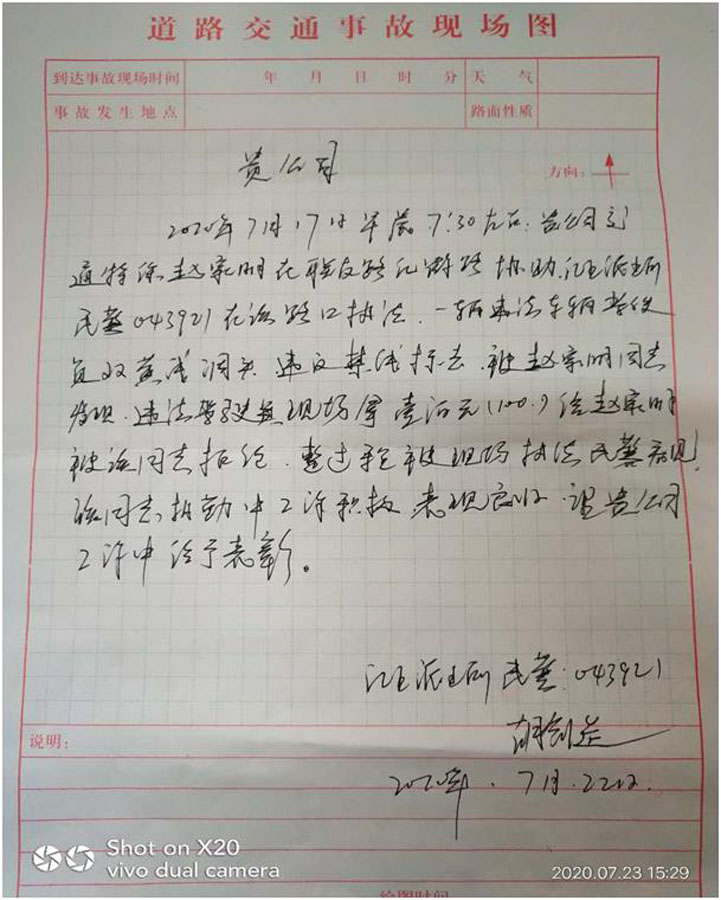 道路交通事故现场图
到达事故现场时间 年 月 日 时 分 天 气
事故发生地点 路面性质
贵公司 方向:
2020年7月17日早晨7:30左右.贵公司交
通特保赵家明在联友路 路协助.派出所
民警043921在该路口执法.一辆违法车辆
双黄线调头 违反禁线标志.被赵家明同志
发现.违法驾驶员现场拿壹佰元(100.)给赵家明
被该同志拒绝.整过程被现场执法民警看见!
该同志执勤中工作积极 表现良好.望贵公司
工作中给予表彰。
派出所 民警:043921
说明:
2020年.7月.22日.
Shot on X20
vivo dual camera
2020.07.23 15:29
绘图时间